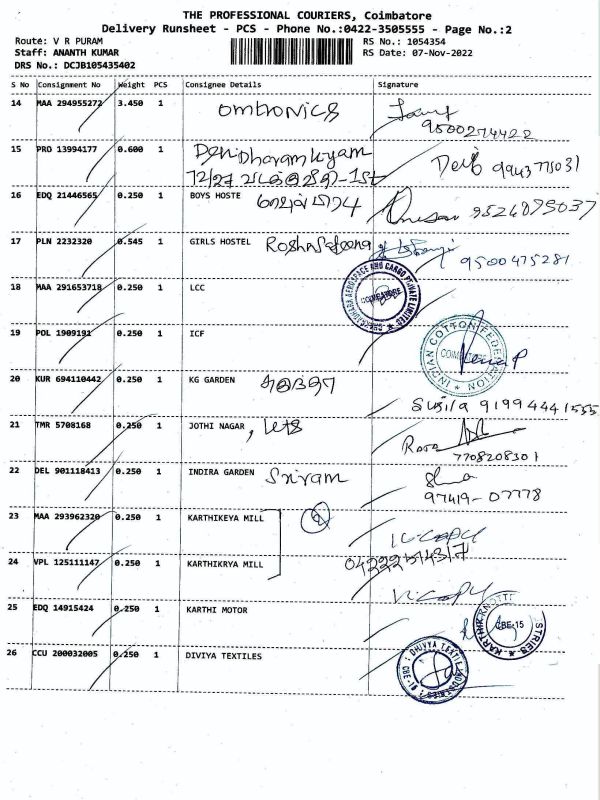 THE PROFESSIONAL COURIERS, Coimbatore
Delivery Runsheet - PCS - Phone No.:0422-3505555 - Page No.:2
Route: V R PURAM
RS No.: 1054354
Staff: ANANTH KUMAR
RS Date: 07-Nov-2022
DRS No.: DCJB105435402
S No Consignment No Weight PCS Consignee Details Signature
14 MAA 294955272 3.450 1 Omtronics
9500274422
15 PRO 13994177 0.600 1 Devi Dharamkiyam Devi 9943775031
12/27
16 EDQ 21446565 0.250 1 BOYS HOSTE 9524895037
17 PLN 2232320 0.545 1 GIRLS HOSTEL 9500475281
18 MAA 291653718 0.250 1 LCC
CHAKRADHARA AEROSPACE AND CARGO PRIVATE LIMITED
COIMBATORE
19 POL 1909191 0.250 1 ICF
INDIAN COTTON FEDERATION
20 KUR 694110442 0.250 1 KG GARDEN
Susila 91994441555
21 TMR 5708168 0.250 1 JOTHI NAGAR,
7708208301
22 DEL 901118413 0.250 1 INDIRA GARDEN Sriram
97419-07778
23 MAA 293962320 0.250 1 KARTHIKEYA MILL 2
K-Copy
24 VPL 125111147 0.250 1 KARTHIKRYA MILL
K-Copy
25 EDQ 14915424 0.250 1 KARTHI MOTOR
CBE-15
26 CCU 200032005 0.250 1 DIVIYA TEXTILES